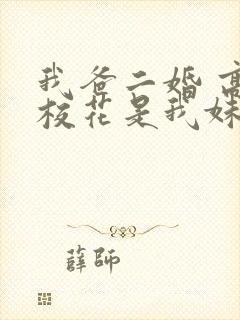 我爸二婚 高
校花是我妹
薛师